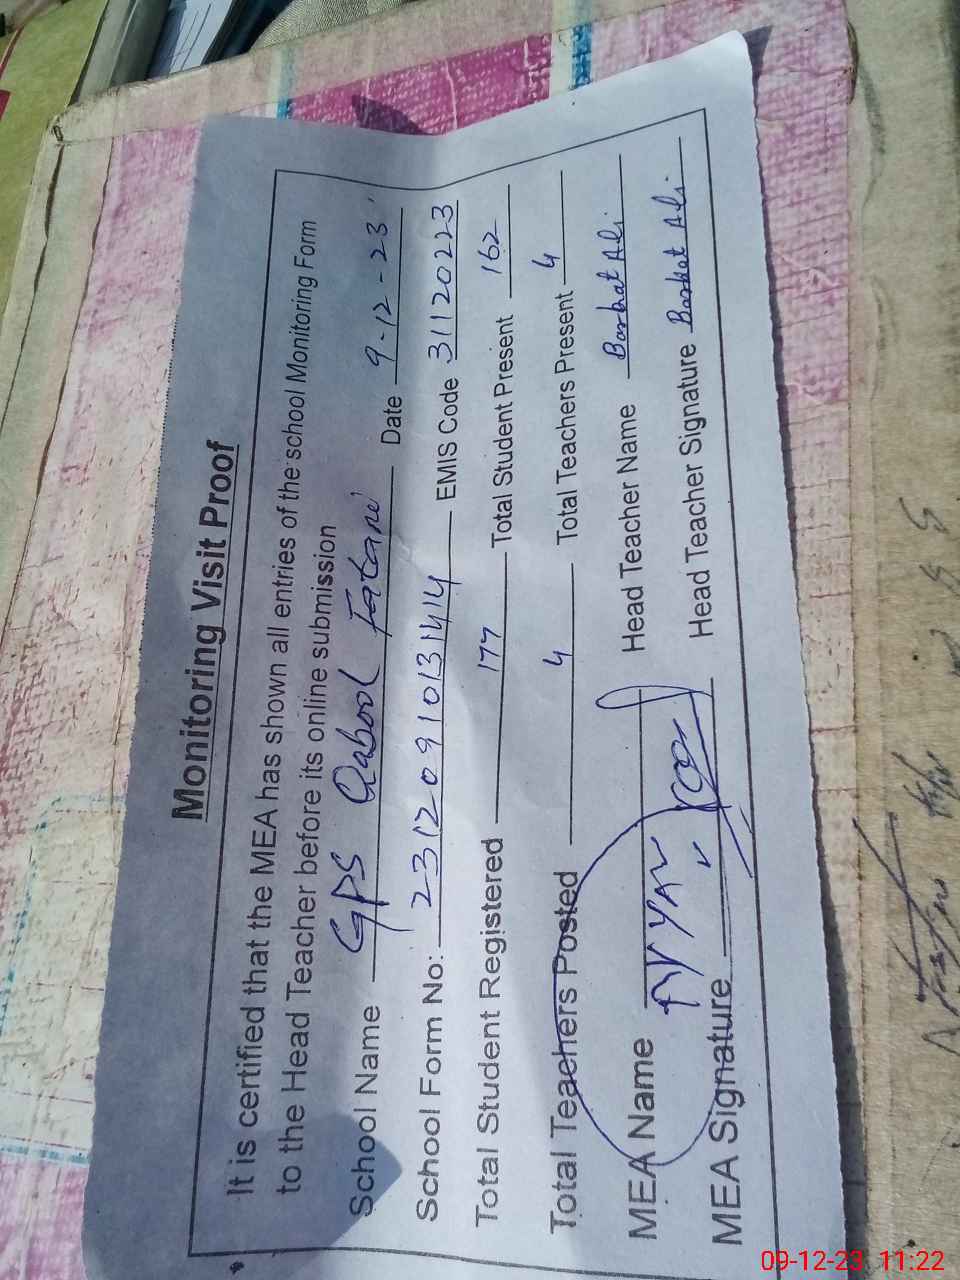 Monitoring Visit Proof
It is certified that the MEA has shown all entries of the school Monitoring Form
to the Head Teacher before its online submission
School Name GPS Qabool Date 9-12-23
School Form No: 23120910131414 EMIS Code 31120223
Total Student Registered 177 Total Student Present 162
Total Teachers Posted 4 Total Teachers Present 4
MEA Name Head Teacher Name Barkat Ali
MEA Signature Head Teacher Signature Barkat Ali
09-12-23 11:22